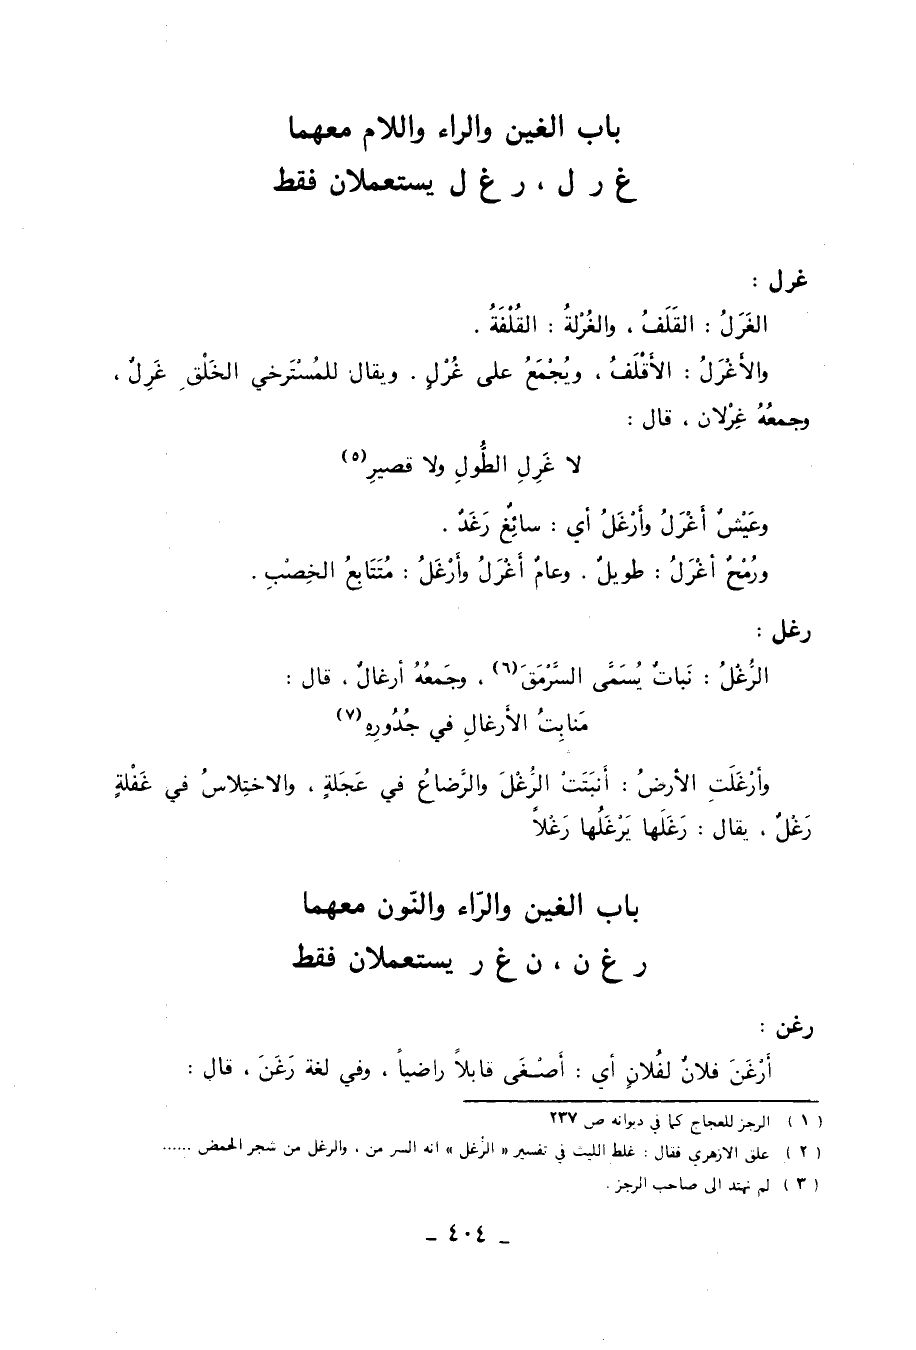 باب الغين والراء واللام معهما
غ ر ل ، ر غ ل يستعملان فقط
غرل :
الغَرَلُ : القَلَفُ ، والغُرْلةُ : القُلْفَةُ .
والأغْرَلُ : الأقْلَفُ ، ويُجْمَعُ على غُرْلٍ . ويقال للمُسْتَرخي الخَلْقِ غَرِلٌ ،
وجمعهُ غِرْلان ، قال :
لا غَرِلِ الطُّولِ ولا قصيرِ(٥)
وعَيْشٌ أغْرَلُ وأرْغَلُ أي : سائِغٌ رَغَدٌ .
ورُمْحٌ أغْرَلُ : طويلٌ . وعامٌ أغْرَلُ وأرْغَلُ : مُتَتَابِعُ الخِصْبِ .
رغل :
الرُّغْلُ : نَباتٌ يُسَمَّى السَّرْمَقَ(٦) ، وجَمعُهُ أرغالٌ ، قال :
مَنابِتُ الأرغالِ في جُدُورِهِ(٧)
وأرْغَلَتِ الأرضُ : أنبَتَتْ الرُّغْلَ والرَّضاعُ في عَجَلةٍ ، والاختِلاسُ في غَفْلةٍ
رَغْلٌ ، يقال : رَغَلَها يَرْغَلُها رَغْلاً
باب الغين والرّاء والنّون معهما
ر غ ن ، ن غ ر يستعملان فقط
رغن :
أرْغَنَ فلانٌ لفُلانٍ أي : أصْغَى قابلاً راضياً ، وفي لغة رَغَنَ ، قال :
( ١ ) الرجز للعجاج كما في ديوانه ص ٢٣٧
( ٢ ) علق الازهري فقال : غلط الليث في تفسير « الرُغل » انه السر من ، والرغل من شجر الحمض ......
( ٣ ) لم نهتد الى صاحب الرجز .
ـ ٤٠٤ ـ